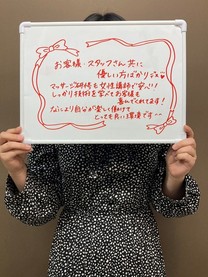 お客様・スタッフさん共に
優しい方ばかりです♥
マッサージ研修も女性講師で安心!!
しっかり技術を学べてお客様も
喜んでくれてます!
なにより自分が楽しく働けて
とっても良い環境です〜〜